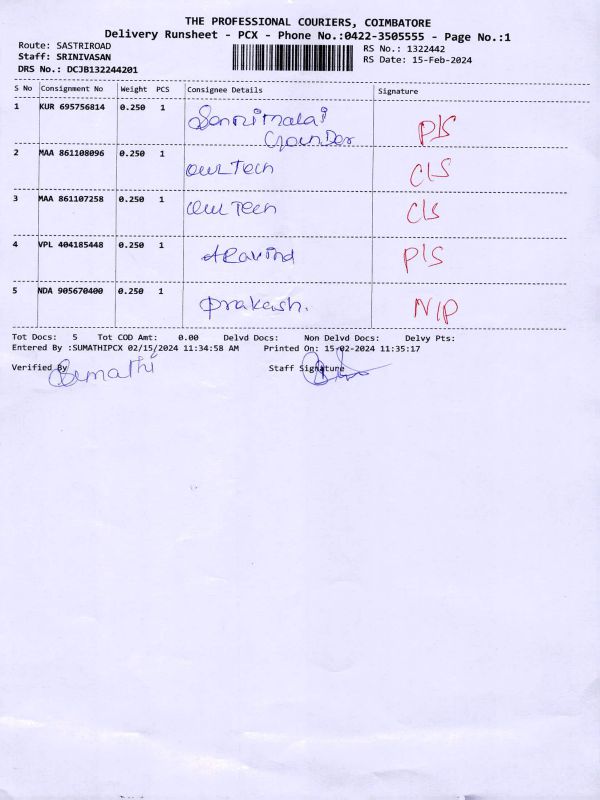 THE PROFESSIONAL COURIERS, COIMBATORE
Delivery Runsheet - PCX - Phone No.:0422-3505555 - Page No.:1
Route: SASTRIROAD
Staff: SRINIVASAN
DRS No.: DCJB132244201
RS No.: 1322442
RS Date: 15-Feb-2024
S No Consignment No Weight PCS Consignee Details Signature
1 KUR 695756814 0.250 1 Sennimalai P/S
Gounder
2 MAA 861108096 0.250 1 our Tech C/S
3 MAA 861107258 0.250 1 our Tech C/S
4 VPL 404185448 0.250 1 Aravind P/S
5 NDA 905670400 0.250 1 Prakash. N/P
Tot Docs: 5 Tot COD Amt: 0.00 Delvd Docs: Non Delvd Docs: Delvy Pts:
Entered By :SUMATHIPCX 02/15/2024 11:34:58 AM Printed On: 15-02-2024 11:35:17
Verified By Sumathi Staff Signature